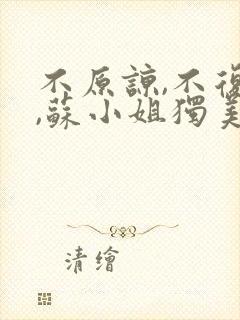 不原諒,不復
,蘇小姐獨美
清繪